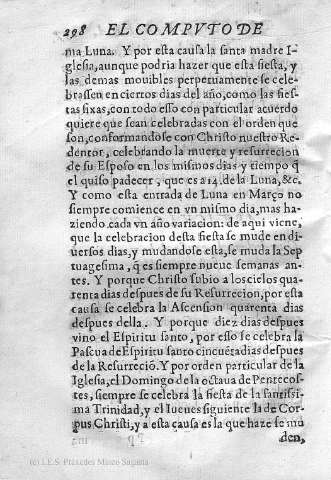 298 EL COMPVTO DE
ma Luna. Y por esta causa la santa madre I-
glesia, aunque podria hazer que esta fiesta, y
las demas mouibles perpetuamente se cele-
brassen en ciertos dias del año, como las fies-
tas fixas, con todo esso con particular acuerdo
quiere que sean celebradas con el orden que
son, conformandose con Christo nuestro Re-
dentor, celebrando la muerte y resurrecion
de su Esposo en los mismos dias y tiempo q̃
el quiso padecer, que es a 14. de la Luna, &c.
Y como esta entrada de Luna en Março no
siempre comience en vn mismo dia, mas ha-
ziendo cada vn año variacion: de aqui viene,
que la celebracion desta fiesta se mude en di-
uersos dias, y mudandose esta, se muda la Sep
tuagesima, q̃ es siempre nueue semanas an-
tes. Y porque Christo subio a los cielos qua-
renta dias despues de su Resurrecion, por esta
causa se celebra la Ascension quarenta dias
despues della. Y porque diez dias despues
vino el Espiritu santo, por esso se celebra la
Pascua de Espiritu santo cincuẽta dias despues
de la Resurreciõ. Y por orden particular de la
Iglesia, el Domingo de la octaua de Pentecos-
tes, siempre se celebra la fiesta de la santissi-
ma Trinidad, y el Iueues siguiente la de Cor-
pus Christi, y a esta causa es la que haze se mu
den,
(c) I.E.S. Práxedes Mateo Sagasta